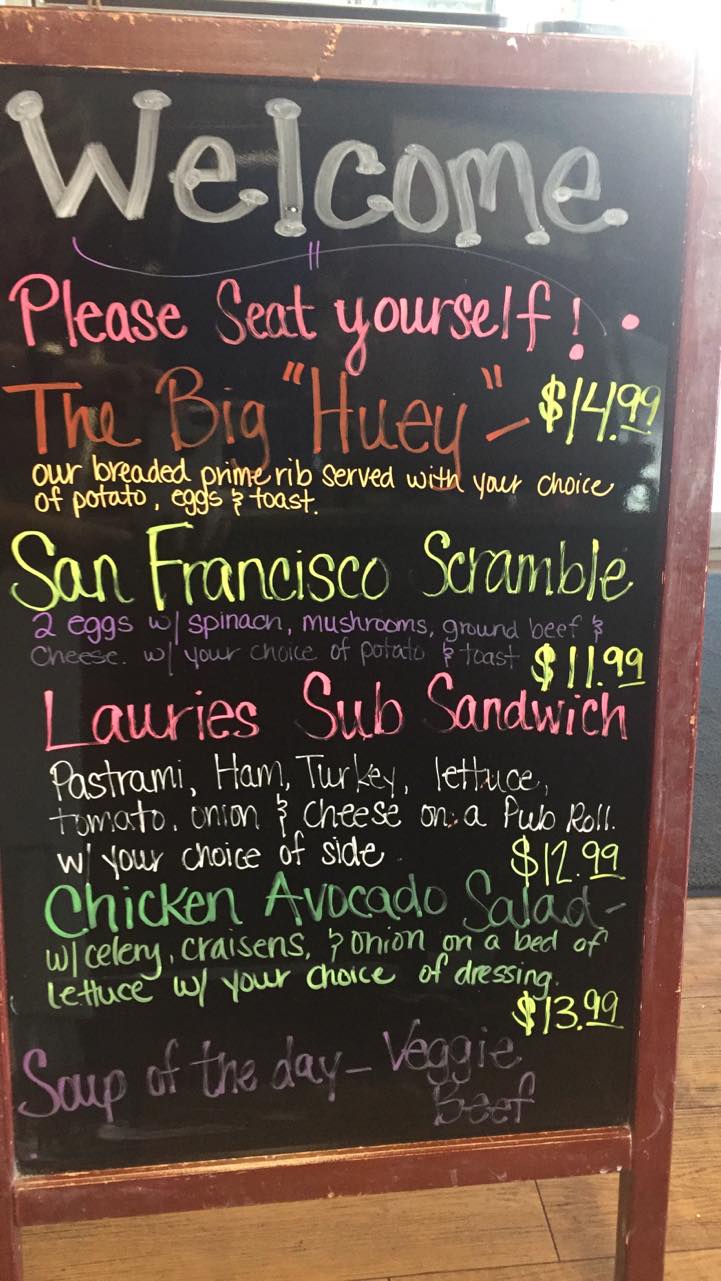 Welcome
Please Seat yourself!
The Big "Huey" - $14.99
our breaded prime rib served with your choice
of potato, eggs & toast.
San Francisco Scramble
2 eggs w/ spinach, mushrooms, ground beef &
cheese. w/ your choice of potato & toast $11.99
Lauries Sub Sandwich
Pastrami, Ham, Turkey, lettuce,
tomato, onion & cheese on a Pub Roll.
w/ your choice of side. $12.99
Chicken Avocado Salad -
w/ celery, craisens, & onion on a bed of
lettuce w/ your choice of dressing.
$13.99
Soup of the day - Veggie
Beef